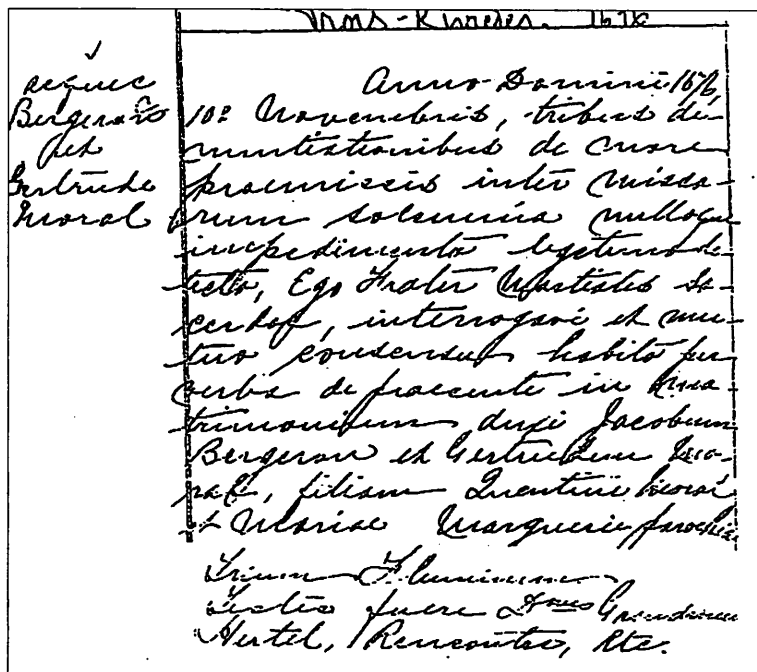 Trois-Rivieres. 1676
acques
Bergeron
et
Gertrude
Moral
Anno Domini 1676,
10ª Novembris, tribus de-
nuntiationibus de more
praemissis inter missa-
rum solemnia nulloque
impedimento legitimo de-
tecto, Ego Frater Martialis Sa-
cerdos, interrogavi et mu-
tuo consensu habito per
verba de praesente in ma-
trimonium duxi Jacobum
Bergeron et Gertrudem Mo-
ral, filiam Quentini Moral
et Mariae Marguerie parochiae
Trium Fluminum
Testes fuere Dnus
Hertel, Rencontre, Etc.